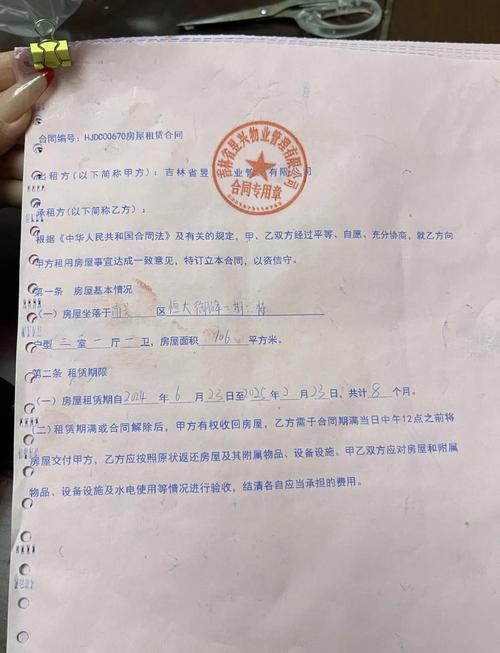 合同编号：HJDC00670房屋租赁合同
吉林省昱兴物业管理有限公司
合同专用章
出租方(以下简称甲方)：吉林省昱 业管 有限公司
承租方(以下简称乙方)：
根据《中华人民共和国合同法》及有关的规定，甲、乙双方经过平等、自愿、充分协商，就乙方向
甲方租用房屋事宜达成一致意见，特订立本合同，以资信守。
第一条 房屋基本情况
(一) 房屋坐落于 区 恒大御峰二期 栋
户型 三 室 一 厅 二 卫，房屋面积 106 平方米。
第二条 租赁期限
(一) 房屋租赁期自2024 年 6 月 23日至2025 年 2 月 23日，共计 8 个月。
(二)租赁期满或合同解除后，甲方有权收回房屋，乙方需于合同期满当日中午12点之前将
房屋交付甲方，乙方应按照原状返还房屋及其附属物品、设备设施。甲乙双方应对房屋和附属
物品、设备设施及水电使用等情况进行验收，结清各自应当承担的费用。